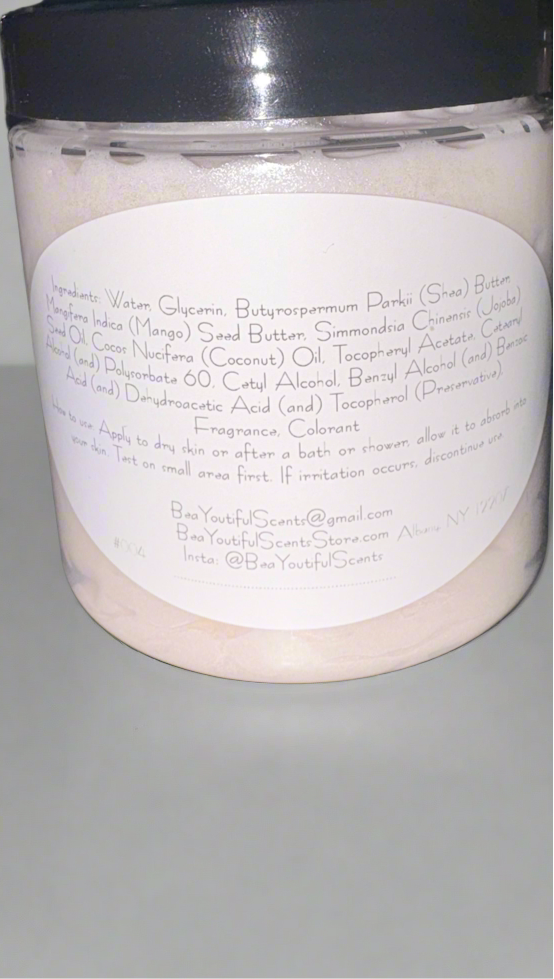 Ingredients: Water, Glycerin, Butyrospermum Parkii (Shea) Butter,
Mangifera Indica (Mango) Seed Butter, Simmondsia Chinensis (Jojoba)
Seed Oil, Cocos Nucifera (Coconut) Oil, Tocopheryl Acetate, Cetearyl
Alcohol (and) Polysorbate 60, Cetyl Alcohol, Benzyl Alcohol (and) Benzoic
Acid (and) Dehydroacetic Acid (and) Tocopherol (Preservative),
Fragrance, Colorant
How to use: Apply to dry skin or after a bath or shower, allow it to absorb into
your skin. Test on small area first. If irritation occurs, discontinue use.
BeaYoutifulScents@gmail.com
BeaYoutifulScentsStore.com Albany NY
Insta: @BeaYoutifulScents
#004